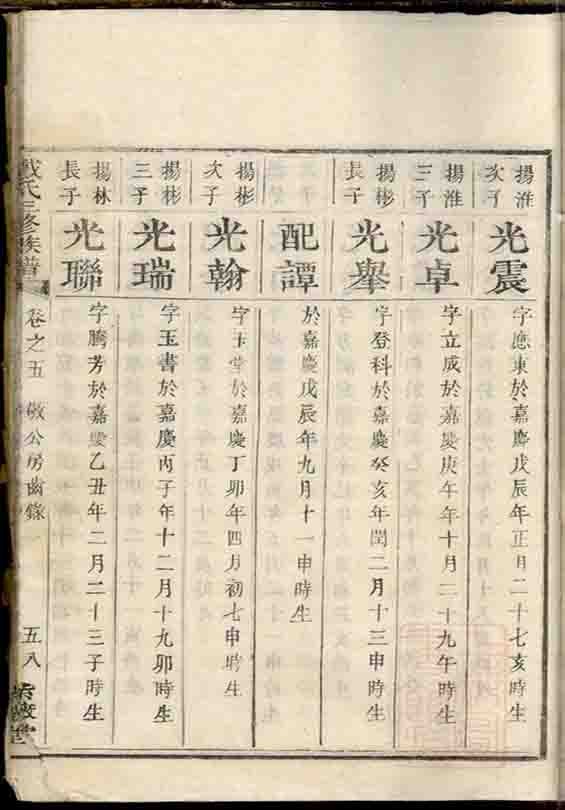 揚淮次子
光震
字應東於嘉慶戊辰年正月二十七亥時生
揚淮三子
光卓
字立成於嘉慶庚午年十月二十九午時生
揚彬長子
光舉
字登科於嘉慶癸亥年閏二月十三申時生
配譚
於嘉慶戊辰年九月十一申時生
揚彬次子
光翰
字玉堂於嘉慶丁卯年四月初七申時生
揚彬三子
光瑞
字玉書於嘉慶丙子年十二月十九卯時生
揚林長子
光聯
字騰芳於嘉慶乙丑年二月二十三子時生
戴氏三修族譜
卷之五 敬公房齒錄
五八
堂